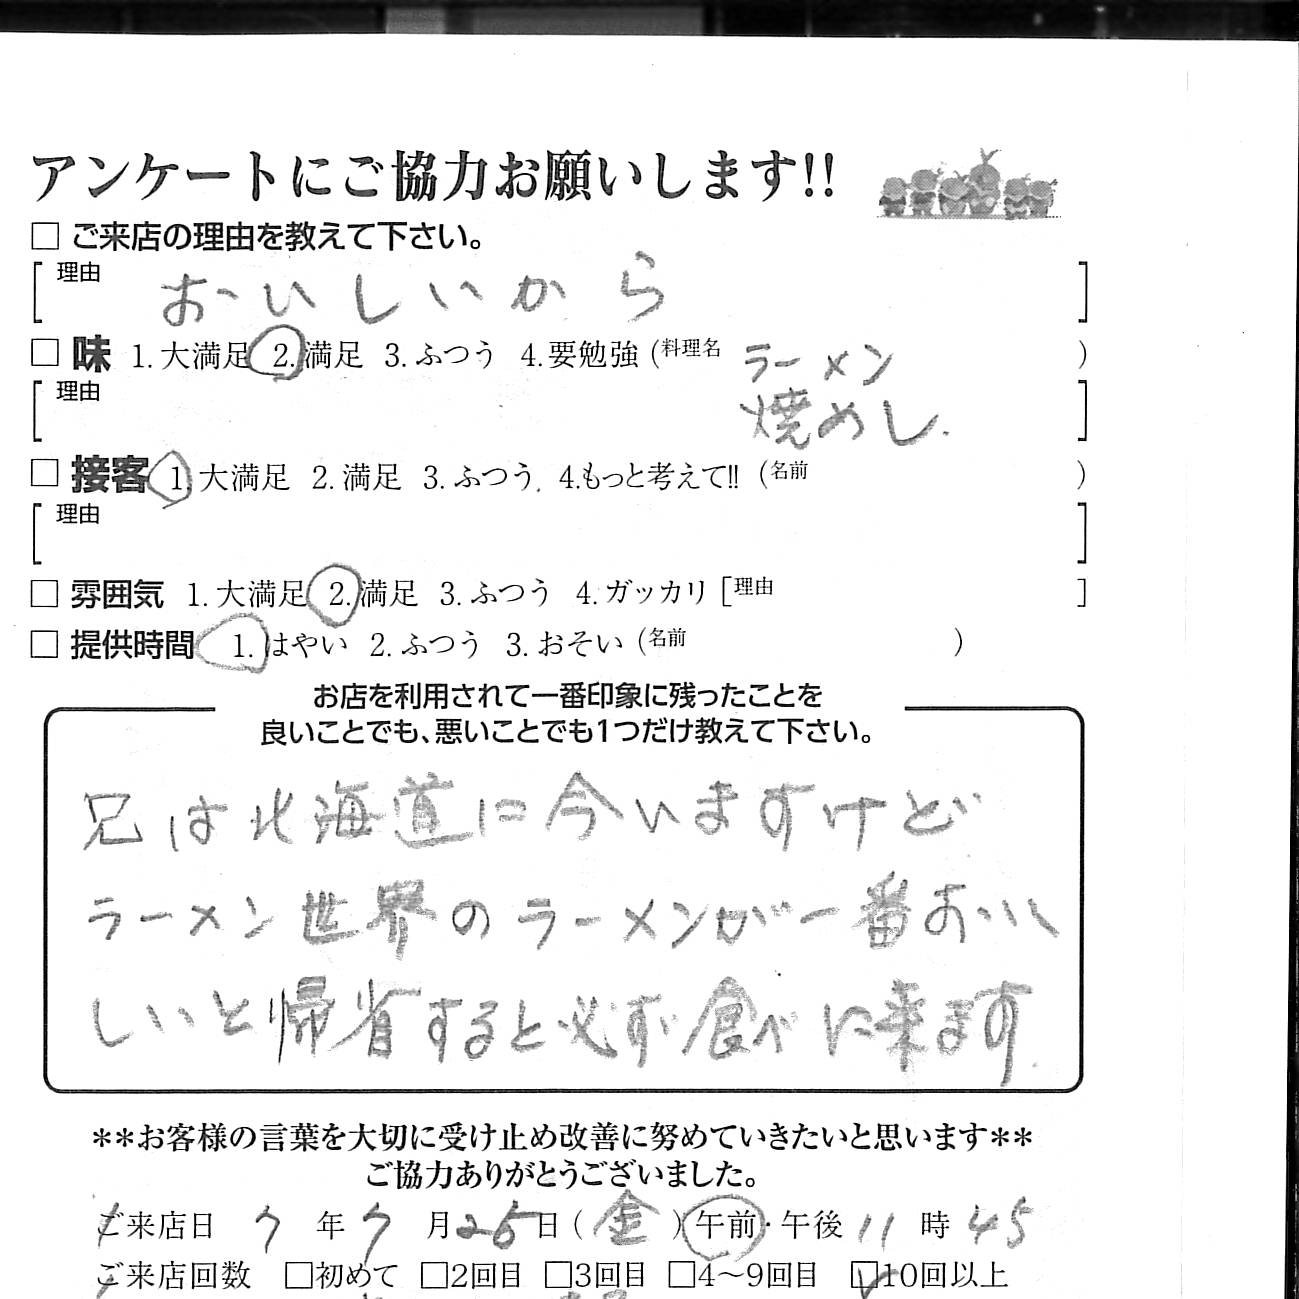 アンケートにご協力お願いします!!
□ ご来店の理由を教えて下さい。
[理由 おいしいから]
□ 味 1.大満足 2.満足 3.ふつう 4.要勉強 (料理名 ラーメン)
[理由 焼めし.]
□ 接客 1.大満足 2.満足 3.ふつう. 4.もっと考えて!! (名前 )
[理由 ]
□ 雰囲気 1.大満足 2.満足 3.ふつう 4.ガッカリ [理由 ]
□ 提供時間 1.はやい 2.ふつう 3.おそい (名前 )
お店を利用されて一番印象に残ったことを
良いことでも、悪いことでも1つだけ教えて下さい。
兄は北海道に今いますけど
ラーメン世界のラーメンが一番おいし
しいと帰省すると必ず食べに来ます.
**お客様の言葉を大切に受け止め改善に努めていきたいと思います**
ご協力ありがとうございました。
ご来店日 7年7月25日(金)午前・午後 11時45
ご来店回数 □初めて □2回目 □3回目 □4〜9回目 □10回以上